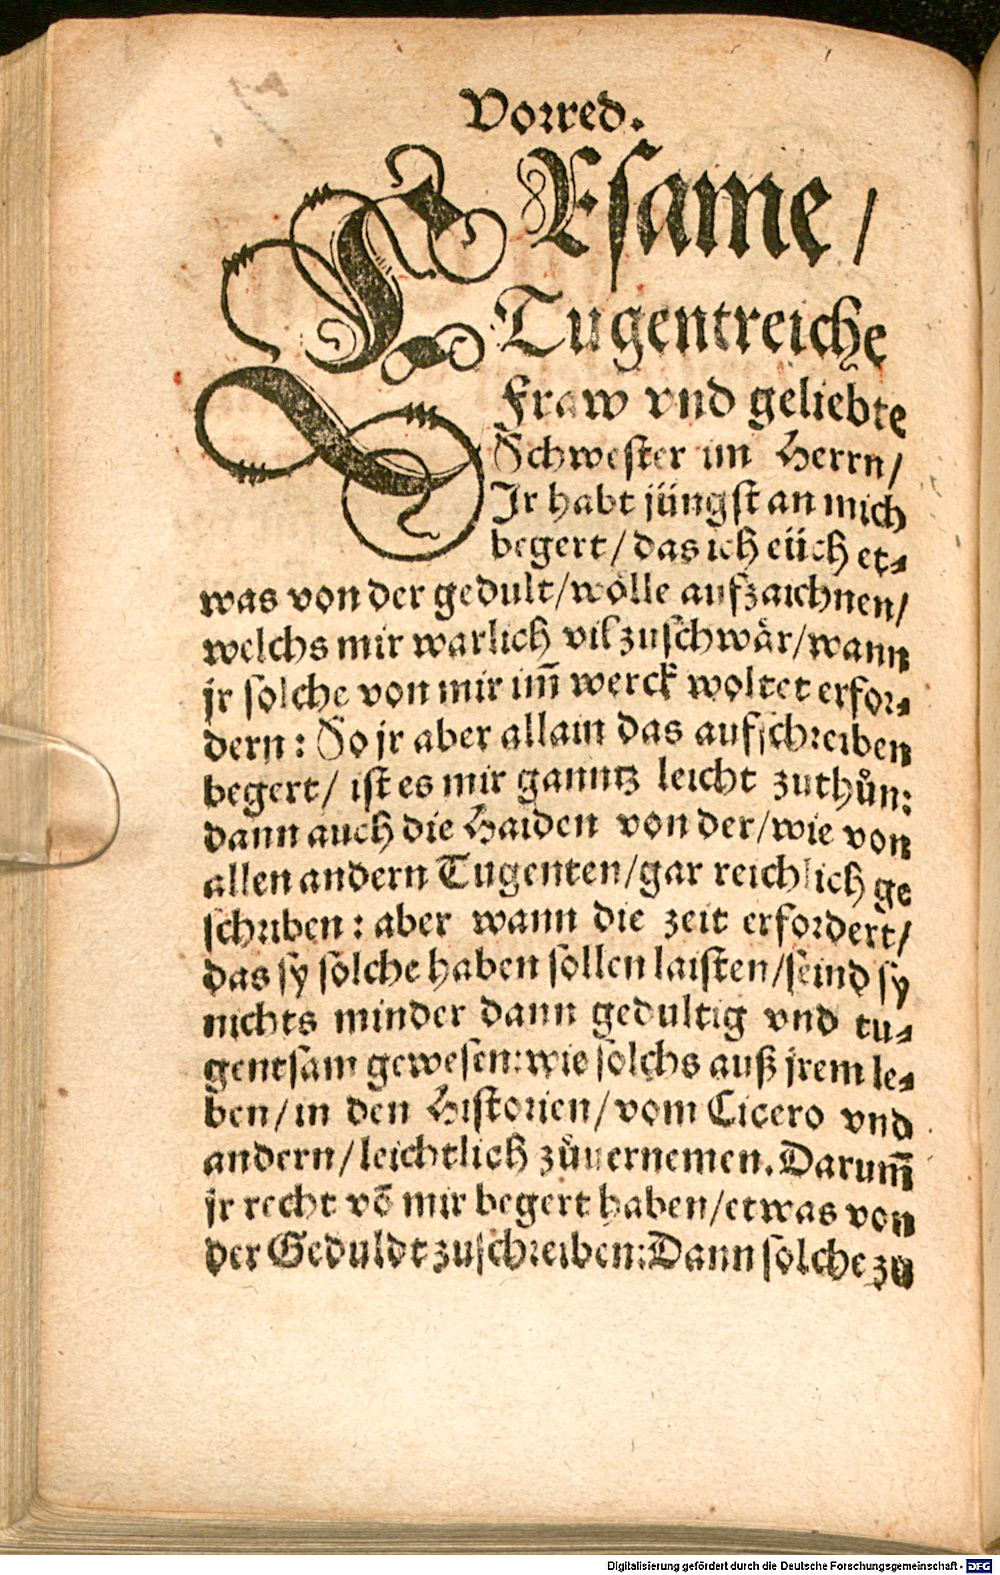 Vorred.
ERsame /
Tugentreiche
Fraw vnd geliebte
Schwester im Herrn /
Jr habt jüngst an mich
begert / das ich eüch et⸗
was von der gedult / wölle aufzaichnen /
welchs mir warlich vil zuschwär / wann
jr solche von mir im̃ werck woltet erfor⸗
dern : So jr aber allain das aufschreiben
begert / ist es mir ganntz leicht zuthůn :
dann auch die Haiden von der / wie von
allen andern Tugenten / gar reichlich ge
schriben : aber wann die zeit erfordert /
das sy solche haben sollen laisten / seind sy
nichts minder dann gedultig vnd tu⸗
gentsam gewesen : wie solchs auß jrem le⸗
ben / in den Historien / vom Cicero vnd
andern / leichtlich zůuernemen. Darum̃
jr recht võ mir begert haben / etwas von
der Geduldt zuschreiben : Dann solche zu
Digitalisierung gefördert durch die Deutsche Forschungsgemeinschaft - DFG